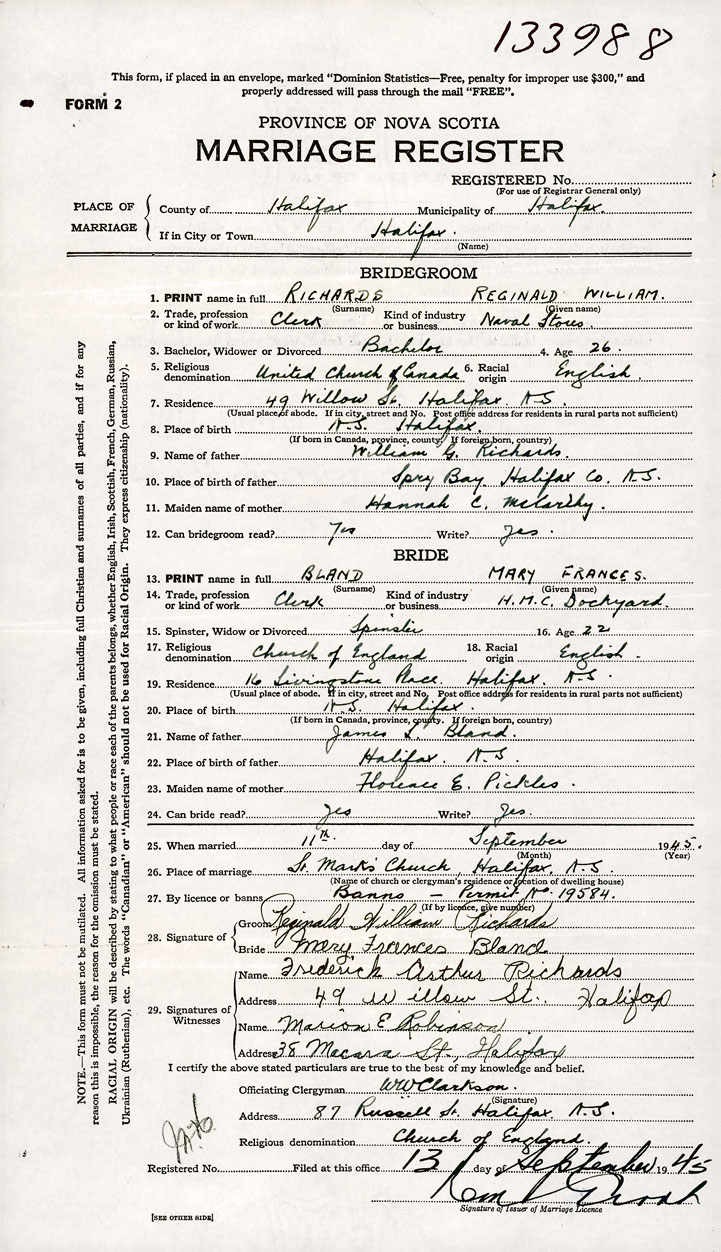 133988
This form, if placed in an envelope, marked "Dominion Statistics—Free, penalty for improper use $300," and
properly addressed will pass through the mail "FREE".
FORM 2
PROVINCE OF NOVA SCOTIA
MARRIAGE REGISTER
REGISTERED No.
(For use of Registrar General only)
PLACE OF MARRIAGE
County of Halifax Municipality of Halifax.
If in City or Town Halifax.
(Name)
BRIDEGROOM
1. PRINT name in full RICHARDS REGINALD WILLIAM.
(Surname) (Given name)
2. Trade, profession or kind of work Clerk Kind of industry or business Naval Stores.
3. Bachelor, Widower or Divorced Bachelor 4. Age 26.
5. Religious denomination United Church of Canada 6. Racial origin English.
7. Residence 49 Willow St. Halifax. N.S.
(Usual place of abode. If in city, street and No. Post office address for residents in rural parts not sufficient)
8. Place of birth N.S. Halifax.
(If born in Canada, province, county. If foreign born, country)
9. Name of father William G. Richards.
10. Place of birth of father Spry Bay Halifax Co. N.S.
11. Maiden name of mother Hannah C. McCarthy.
12. Can bridegroom read? Yes Write? Yes.
BRIDE
13. PRINT name in full BLAND MARY FRANCES.
(Surname) (Given name)
14. Trade, profession or kind of work Clerk Kind of industry or business H.M.C. Dockyard.
15. Spinster, Widow or Divorced Spinster 16. Age 22
17. Religious denomination Church of England 18. Racial origin English.
19. Residence 16 Livingstone Place. Halifax. N.S.
(Usual place of abode. If in city, street and No. Post office address for residents in rural parts not sufficient)
20. Place of birth N.S. Halifax.
(If born in Canada, province, county. If foreign born, country)
21. Name of father James L. Bland.
22. Place of birth of father Halifax. N.S.
23. Maiden name of mother Florence E. Pickles.
24. Can bride read? Yes Write? Yes.
25. When married 11th. day of September 1945.
(Month) (Year)
26. Place of marriage St. Mark's Church, Halifax, N.S.
(Name of church or clergyman's residence or location of dwelling house)
27. By licence or banns Banns — Permit No. 19584.
(If by licence, give number)
28. Signature of
Groom Reginald William Richards
Bride Mary Frances Bland
29. Signatures of Witnesses
Name Frederick Arthur Richards
Address 49 Willow St. Halifax
Name Marion E Robinson
Address 38 Macara St., Halifax
I certify the above stated particulars are true to the best of my knowledge and belief.
Officiating Clergyman WW Clarkson.
(Signature)
Address 87 Russell St. Halifax N.S.
Religious denomination Church of England.
Registered No. Filed at this office 13 day of September 1945
Signature of Issuer of Marriage Licence
[SEE OTHER SIDE]
NOTE.—This form must not be mutilated. All information asked for is to be given, including full Christian and surnames of all parties, and if for any
reason this is impossible, the reason for the omission must be stated.
RACIAL ORIGIN will be described by stating to what people or race each of the parents belongs, whether English, Irish, Scottish, French, German, Russian,
Ukrainian (Ruthenian), etc. The words "Canadian" or "American" should not be used for Racial Origin. They express citizenship (nationality).